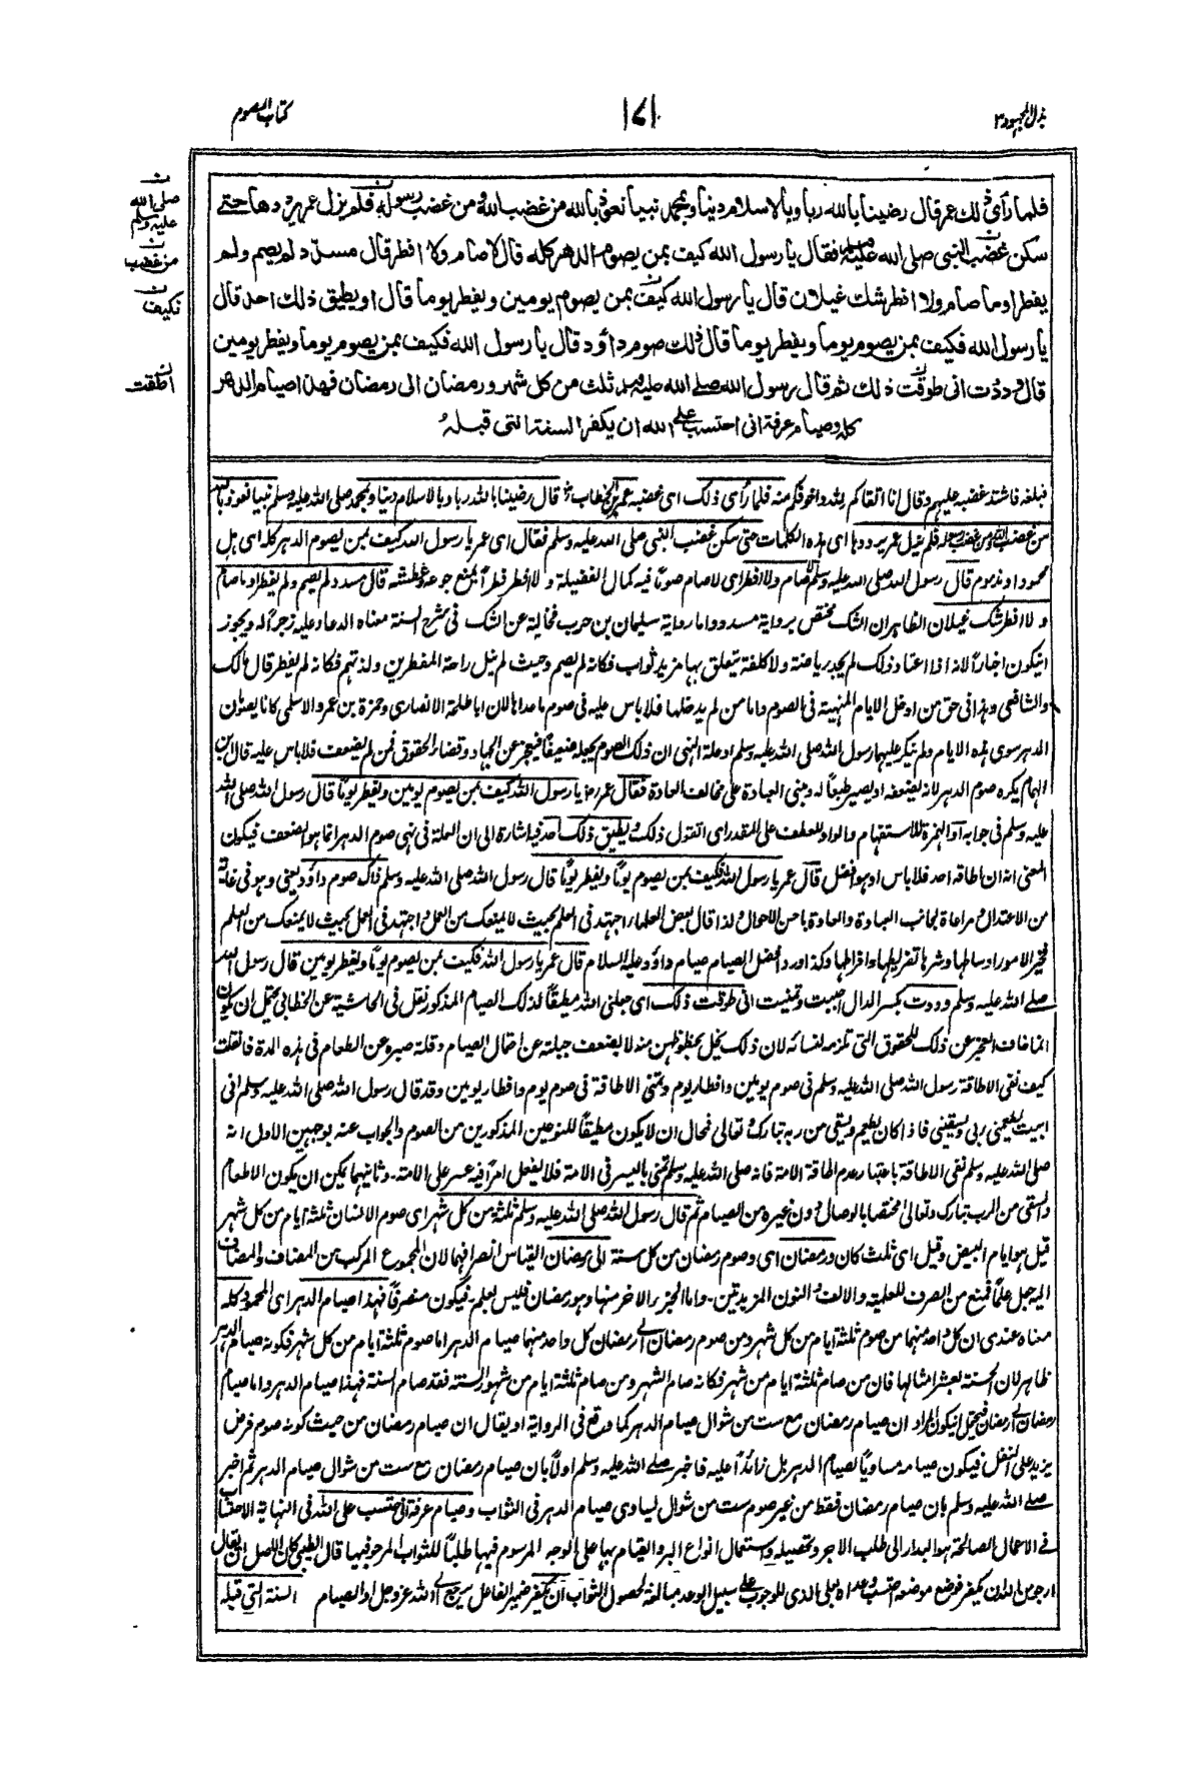 بذل المجهود ٣
١٧١
كتاب الصوم
فلما رأى ذلك عمر قال رضينا بالله ربا وبالإسلام دينا وبمحمد نبيا نعوذ بالله من غضب الله ومن غضب رسوله فلم يزل عمر يرددها حتى
سكن غضب النبي صلى الله عليه وسلم فقال يا رسول الله كيف بمن يصوم الدهر كله قال لا صام ولا افطر قال مسدد لم يصم ولم
يفطر او ما صام ولا افطر شك غيلان قال يا رسول الله كيف بمن يصوم يومين ويفطر يوما قال او يطيق ذلك احد قال
يا رسول الله فكيف بمن يصوم يوما ويفطر يوما قال ذلك صوم داؤد قال يا رسول الله فكيف بمن يصوم يوما ويفطر يومين
قال وددت انى طوقت ذلك ثم قال رسول الله صلى الله عليه وسلم ثلث من كل شهر ورمضان الى رمضان فهذا صيام الدهر
كله وصيام عرفة انى احتسب على الله ان يكفر السنة التى قبله
ن
صلى الله
عليه وسلم
ن
من غضب
ن
فكيف
ن
اطقت
فبلغه فاشتد غضبه عليهم وقال انا اتقاكم لله واخوفكم منه فلما رأى ذلك اى غضبه عمر بن الخطاب قال رضينا بالله ربا وبالاسلام دينا وبمحمد صلى الله عليه وسلم نبيا نعوذ بالله
من غضب الله ومن غضب رسوله فلم يزل عمر يرددها اى هذه الكلمات حتى سكن غضب النبى صلى الله عليه وسلم فقال اى عمر يا رسول الله كيف بمن يصوم الدهر كله اى هل
محمود او مذموم قال رسول الله صلى الله عليه وسلم لا صام ولا افطر اى لا صام صوما فيه كمال الفضيلة ولا افطر فطرا يمنع جوعه وعطشه قال مسدد لم يصم ولم يفطر او ما صام
ولا افطر شك غيلان الظاهر ان الشك مختص برواية مسدد واما رواية سليمان بن حرب فخالية عن الشك فى شرح السنة معناه الدعاء عليه زجرا له ويجوز
ان يكون اخبارا لانه اذا اعتاد ذلك لم يجد رياضة ولا كلفة يتعلق بها مزيد ثواب فكانه لم يصم وحيث لم ينل راحة المفطرين ولذتهم فكانه لم يفطر قال مالك
والشافعى وهذا فى حق من ادخل الايام المنهية فى الصوم واما من لم يدخلها فلا باس عليه فى صوم ما عداها لان ابا طلحة الانصارى وحمزة بن عمرو الاسلمى كانا يصومان
الدهر سوى هذه الايام ولم ينكر عليهما رسول الله صلى الله عليه وسلم او علة النهى ان ذلك الصوم يجعله ضعيفا فيعجز عن الجهاد وقضاء الحقوق فمن لم يضعف فلا باس عليه قال ابن
الهمام يكره صوم الدهر لانه يضعفه او يصير طبعا له ومبنى العبادة على مخالف العادة فقال عمر يا رسول الله كيف بمن يصوم يومين ويفطر يوما قال رسول الله صلى الله
عليه وسلم فى جوابه أو الهمزة للاستفهام والواو للعطف على المقدر اى اتقول ذلك ويطيق ذلك احد فيه اشارة الى ان العلة فى نهى صوم الدهر انما هو الضعف فيكون
المعنى انه ان اطاقه احد فلا باس او هو افضل قال عمر يا رسول الله فكيف بمن يصوم يوما ويفطر يوما قال رسول الله صلى الله عليه وسلم ذاك صوم داؤد يعنى وهو فى غاية
من الاعتدال ومراعاة لجانب العبادة والعادة باحسن الاحوال ولذا قال بعض العلماء اجتهد فى العلم بحيث لا يمنعك من العمل واجتهد فى العمل بحيث لا يمنعك من العلم
فخير الامور اوساطها وشرها تفريطها وافراطها وكذا ورد افضل الصيام صيام داؤد عليه السلام قال عمر يا رسول الله فكيف بمن يصوم يوما ويفطر يومين قال رسول الله
صلى الله عليه وسلم وددت بكسر الدال احببت وتمنيت انى طوقت ذلك اى جعلنى الله مطيقا لذلك الصيام المذكور نقل فى الحاشية عن الخطابى يحتمل ان يكون
انما خاف العجز عن ذلك للحقوق التى تلزمه لنسائه لان ذلك يخل بحظوظهن منه لا يضعف جبلته عن احتمال الصيام وقلة صبره عن الطعام فى هذه المدة فان قلت
كيف نفى الاطاقة رسول الله صلى الله عليه وسلم فى صوم يومين وافطار يوم وتمنى الاطاقة فى صوم يوم وافطار يومين وقد قال رسول الله صلى الله عليه وسلم انى
ابيت يطعمنى ربى ويسقينى فاذا كان يطعم ويسقى من ربه تبارك وتعالى فمحال ان لا يكون مطيقا للنوعين المذكورين من الصوم والجواب عنه بوجهين الاول انه
صلى الله عليه وسلم نفى الاطاقة باعتبار عدم اطاقة الامة فانه صلى الله عليه وسلم تمنى باليسر فى الامة فلا يفعل امرا فيه عسر على الامة ۔ وثانيهما يمكن ان يكون الاطعام
والسقى من الرب تبارك وتعالى مختصا بالوصال دون غيره من الصيام ثم قال رسول الله صلى الله عليه وسلم ثلثة من كل شهر اى صوم الانسان ثلثة ايام من كل شهر
قيل هو ايام البيض وقيل اى ثلث كان ورمضان اى وصوم رمضان من كل سنة الى رمضان القياس انصرافهما لان المجموع المركب من المضاف والمضاف
اليه جعل علما فمنع من الصرف للعلمية والالف والنون المزيدتين ۔ واما الجزء الاخر منها وهو رمضان فليس بعلم فيكون منصرفا فهذا صيام الدهر اى المحمود كله
معناه عندى ان كل واحد منهما من صوم ثلثة ايام من كل شهر ومن صوم رمضان الى رمضان كل واحد منهما صيام الدهر اما صوم ثلثة ايام من كل شهر فكونه صيام الدهر
ظاهر لان الحسنة بعشر امثالها فان من صام ثلثة ايام من شهر فكانه صام الشهر ومن صام ثلثة ايام من شهور السنة فقد صام السنة فهذا صيام الدهر واما صيام
رمضان الى رمضان فيحتمل ان يكون المراد ان صيام رمضان مع ست من شوال صيام الدهر كما وقع فى الرواية او يقال ان صيام رمضان من حيث كونه صوم فرض
يزيد على النفل فيكون صيامه مساويا لصيام الدهر بل زائدا عليه فاخبر صلى الله عليه وسلم اولا بان صيام رمضان مع ست من شوال صيام الدهر ثم اخبر
صلى الله عليه وسلم بان صيام رمضان فقط من غير صوم ست من شوال يساوى صيام الدهر فى الثواب وصيام عرفة انى احتسب على الله فى النهاية الاحتساب
فى الاعمال الصالحة هو البدار الى طلب الاجر وتحصيله واستعمال انواع البر والقيام بها على الوجه المرسوم فيها طلبا للثواب المرجو فيها قال الطيبى كان الاصل ان يقال
ارجو من الله ان يكفر فوضع موضعه احتسب وعداه بعلى الذى للوجوب على سبيل الوعد مبالغة لحصول الثواب ان يكفر ضمير الفاعل يرجع الى الله عز وجل او الصيام السنة التى قبله